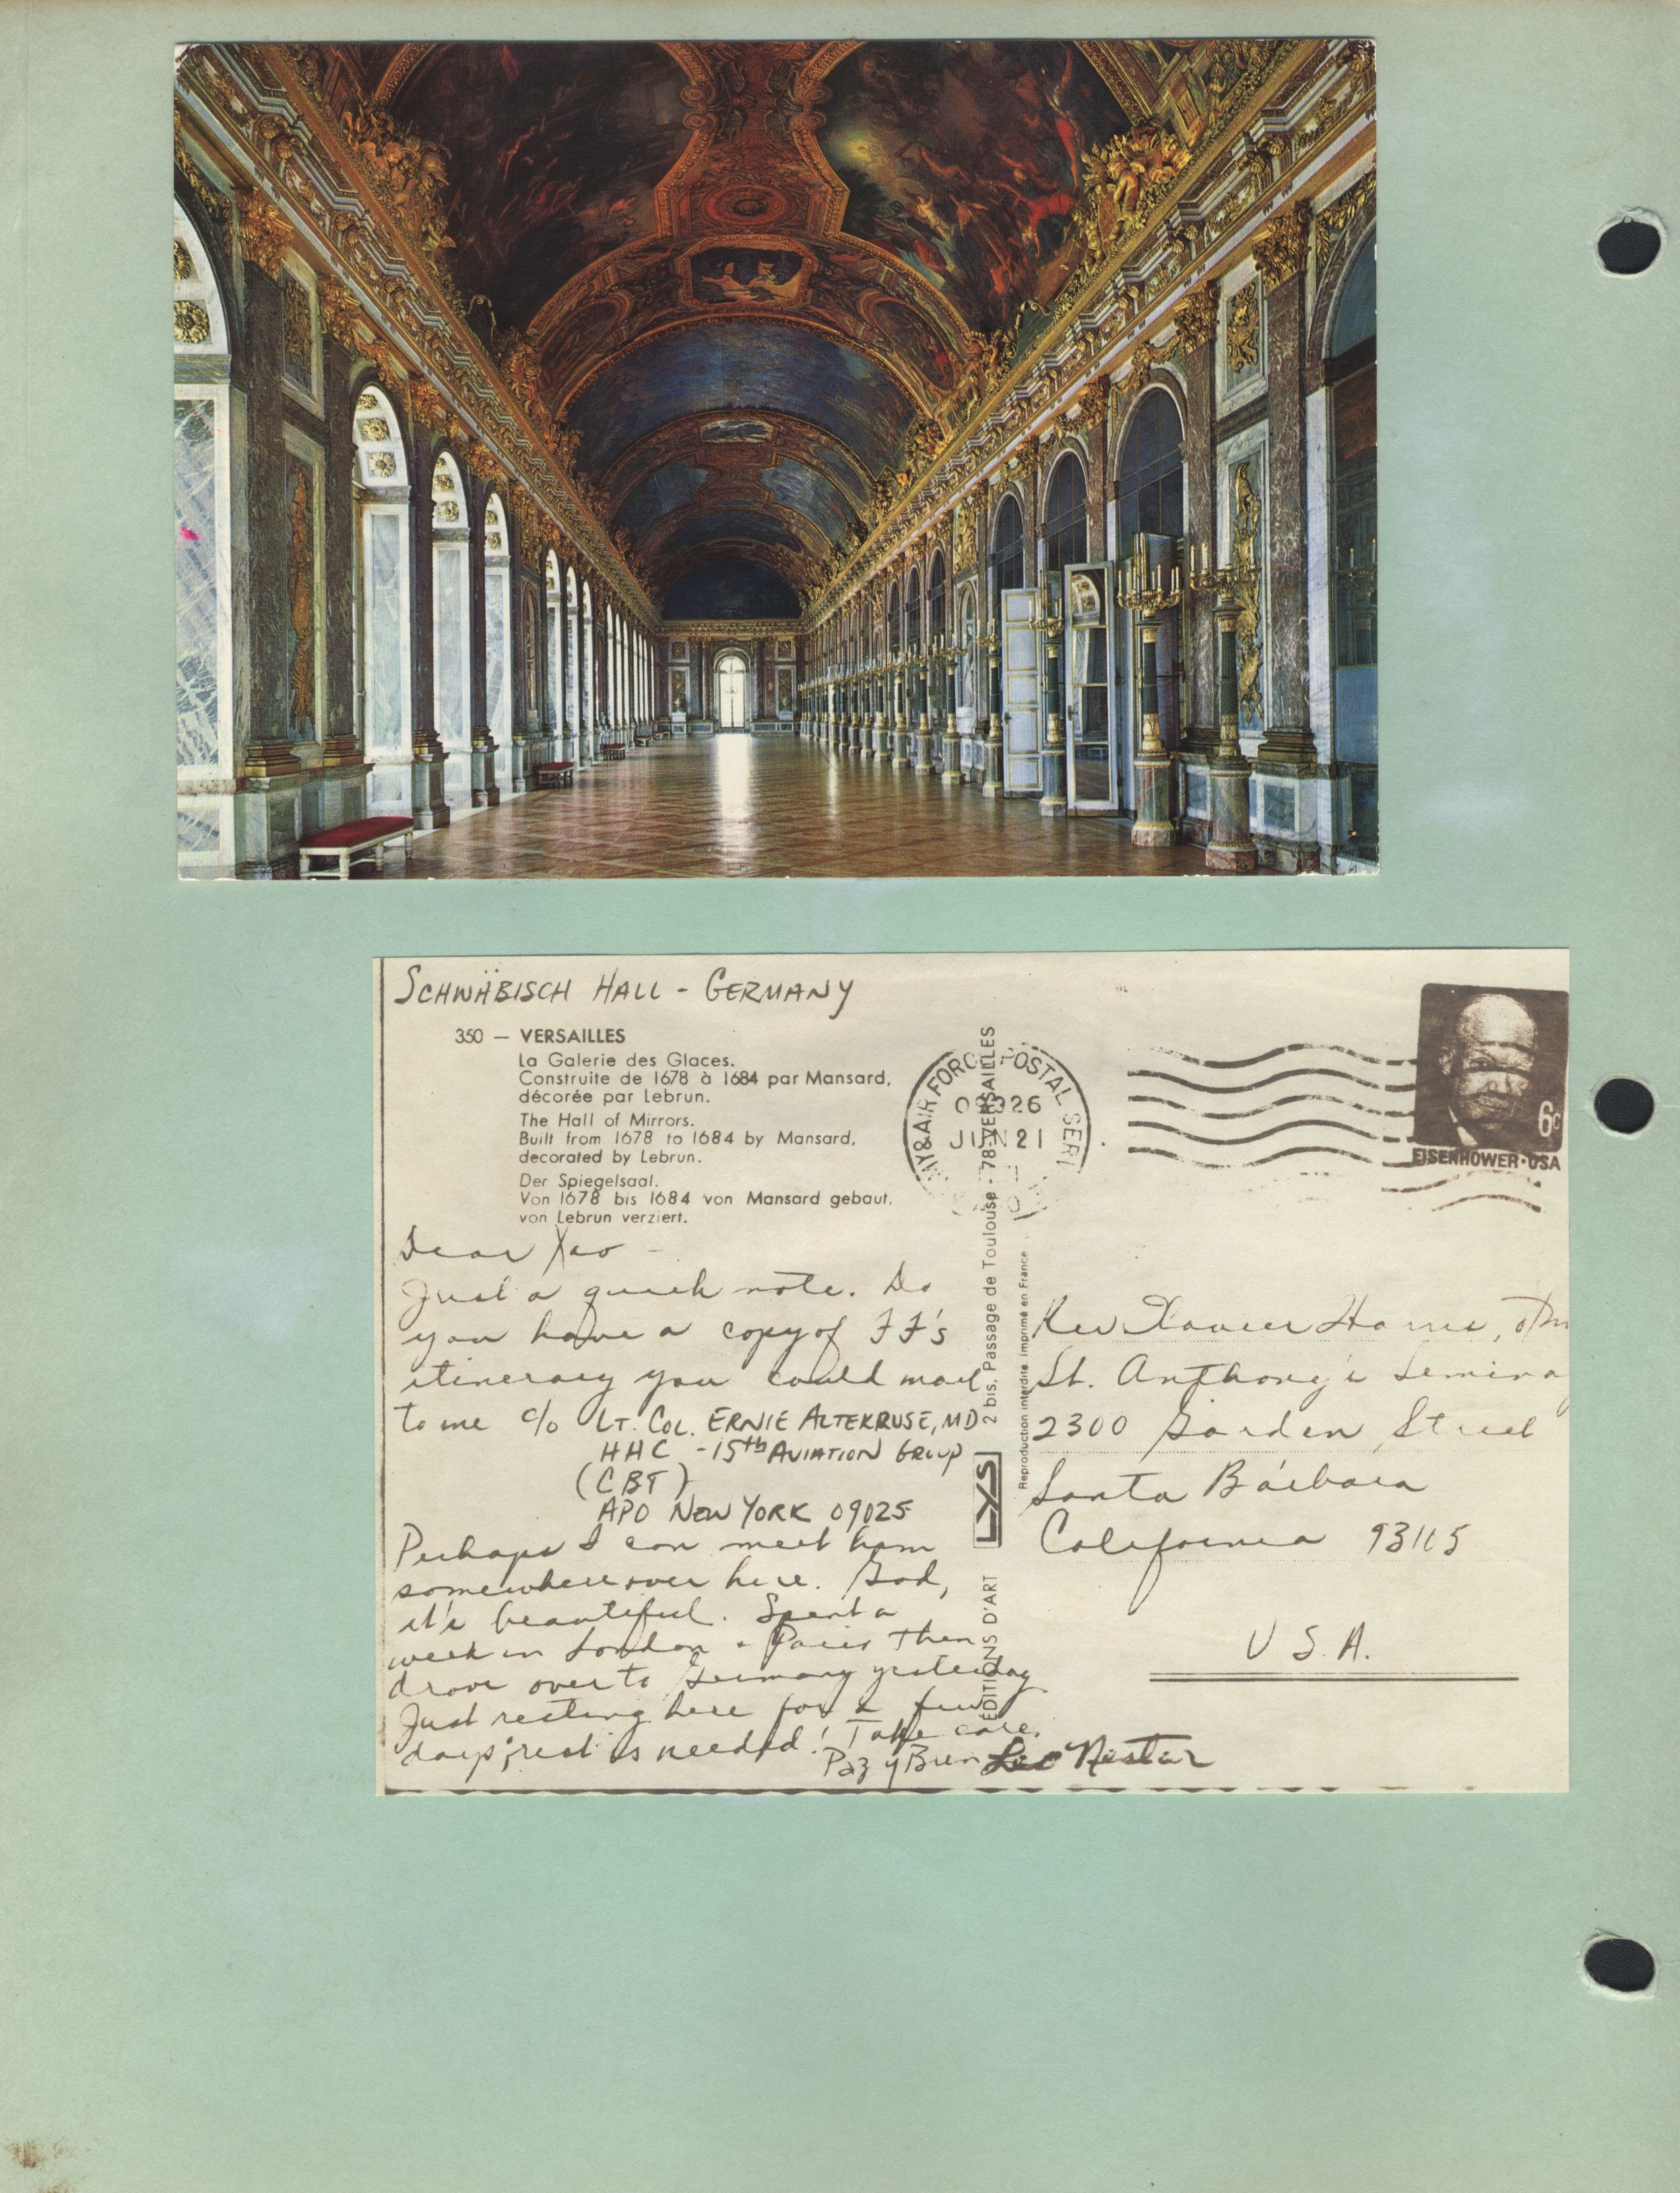 SCHWÄBISCH HALL - GERMANY
350 — VERSAILLES
La Galerie des Glaces.
Construite de 1678 à 1684 par Mansard,
décorée par Lebrun.
The Hall of Mirrors.
Built from 1678 to 1684 by Mansard,
decorated by Lebrun.
Der Spiegelsaal.
Von 1678 bis 1684 von Mansard gebaut,
von Lebrun verziert.
Dear Xav -
Just a quick note. Do
you have a copy of FF's
itinerary you could mail
to me c/o LT. COL. ERNIE ALTEKRUSE, MD
HHC - 15th AVIATION GROUP
(CBT)
APO NEW YORK 09025
Perhaps I can meet him
somewhere over here. God,
it's beautiful. Spent a
week in London + Paris then
drove over to Germany yesterday
Just resting here for a few
days; rest is needed! Take care.
Paz y Bien Leo Nestor
ÉDITIONS D'ART LYS 2 bis, Passage de Toulouse - 78-VERSAILLES
Reproduction interdite Imprimé en France
Y&AIR FORC POSTAL SERV
JUN 21
6c
EISENHOWER·USA
Rev Xavier Harris, ofm
St. Anthony's Semina
2300 Garden Street
Santa Bárbara
California 93105
U.S.A.